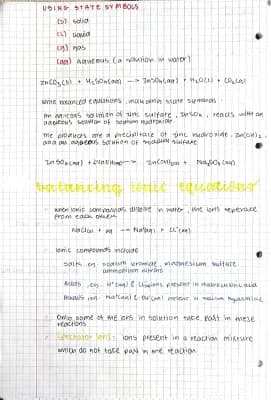 USING STATE SYMBOLS
(s) solid
(l) liquid
(g) gas
(aq) aqueous (a solution in water)
ZnCO3(s) + H2SO4(aq) → ZnSO4(aq) + H2O(l) + CO2(g)
write balanced equations, including state symbols
An aqueous solution of zinc sulfate, ZnSO4, reacts with an
aqueous solution of sodium hydroxide.
The products are a precipitate of zinc hydroxide, Zn(OH)2,
and an aqueous solution of sodium sulfate
ZnSO4(aq) + 2NaOH(aq) → Zn(OH)2(s) + Na2SO4(aq)
balancing ionic equations
when ionic compounds dissolve in water, the ions seperate
from each other
NaCl(s) + aq → Na+(aq) + Cl-(aq)
Ionic compounds include
salts eg. sodium bromide, magnesium sulfate
ammonium nitrate
Acids, eg. H+(aq) & Cl-(aq) present in hydrochloric acid
Na+(aq) & OH-(aq) present in sodium hydroxide
Only some of the ions in solution take part in these
reactions
spectator ions: ions present in a reaction mixture
which do not take part in the reaction